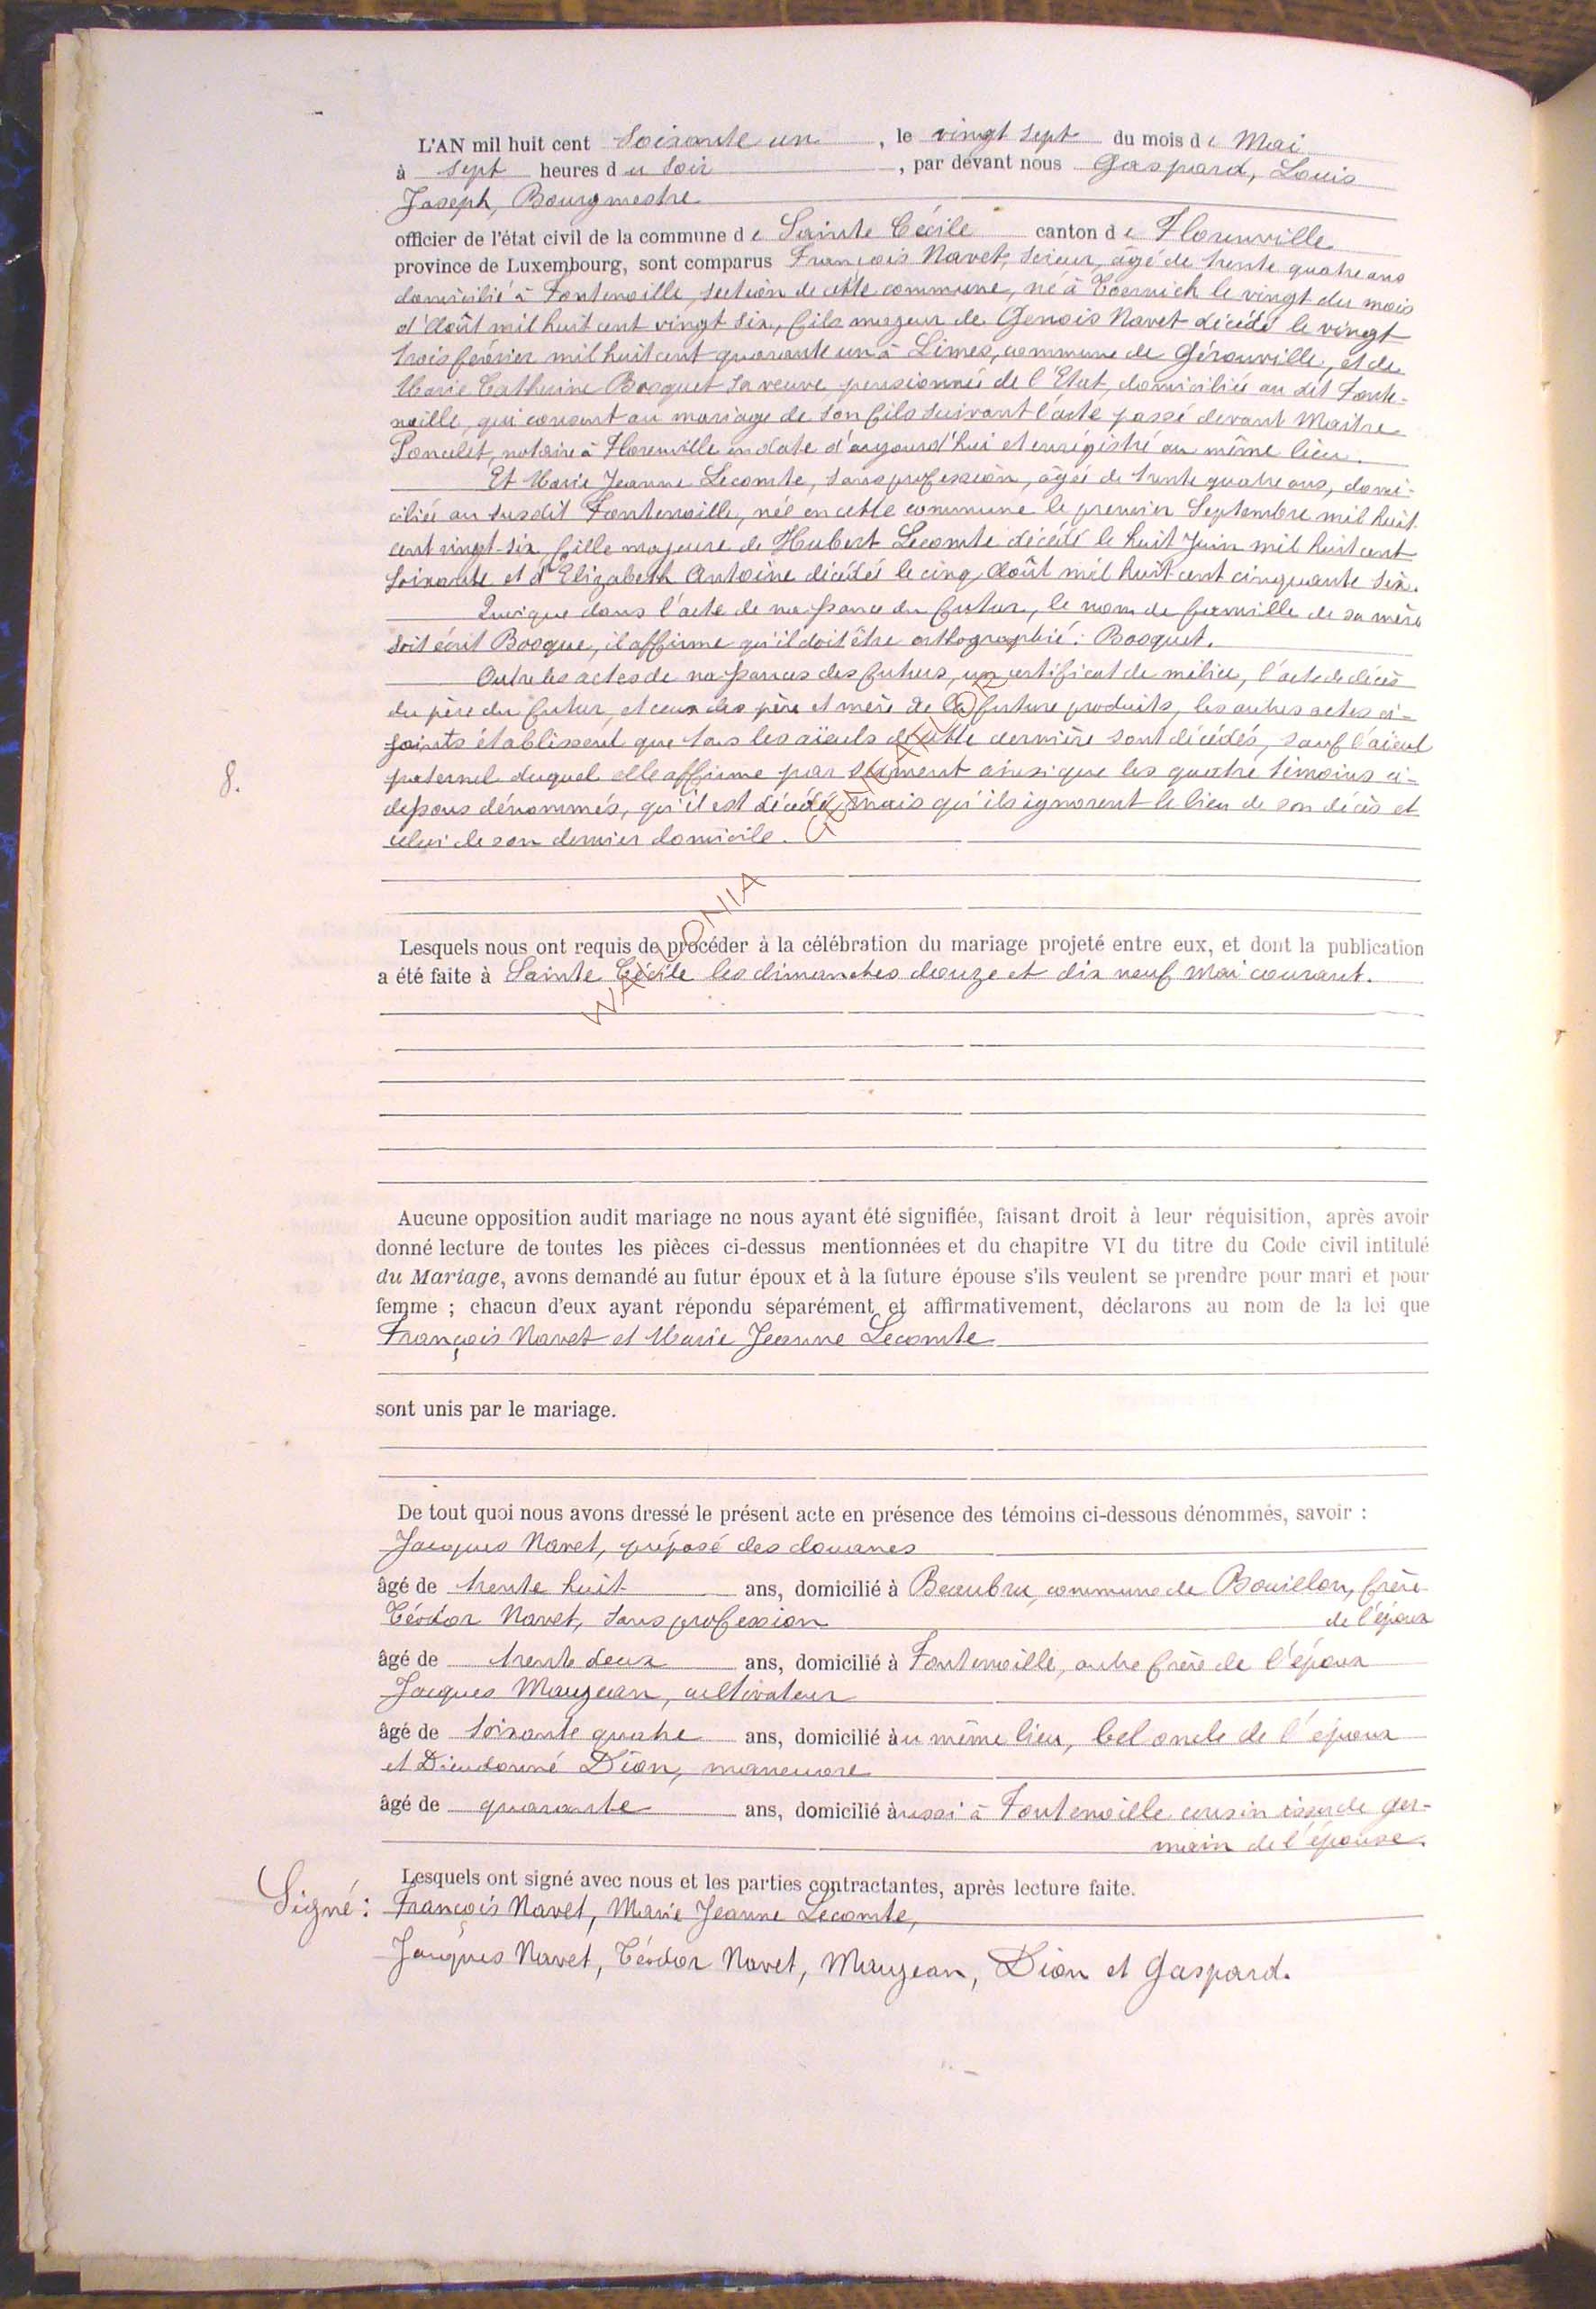 L'AN mil huit cent Soixante un, le vingt sept du mois de Mai
à sept heures du soir, par devant nous Gaspard, Louis
Joseph, Bourgmestre
officier de l'état civil de la commune de Sainte Cécile canton de Florenville
province de Luxembourg, sont comparus François Navet, scieur, âgé de trente quatre ans
domicilié à Fontenoille, section de cette commune, né à le vingt du mois
d'Août mil huit cent vingt six, fils majeur de Genois Navet décédé le vingt
trois février mil huit cent quarante un à Limes, commune de Gérouville, et de
Marie Catherine Bosquet sa veuve, pensionnée de l'Etat, domiciliée au dit Fonte-
noille, qui consent au mariage de son fils suivant l'acte passé devant Maitre
Poncelet, notaire à Florenville en date d'aujourd'hui et enrégistré au même lieu.
Et Marie Jeanne Lecomte, sans profession, âgée de trente quatre ans, domi-
ciliée au susdit Fontenoille, née en cette commune le premier Septembre mil huit
cent vingt-six, fille majeure de Hubert Lecomte décédé le huit Juin mil huit cent
soixante et d'Elizabeth Antoine décédée le cinq Août mil huit cent cinquante six.
Quoique dans l'acte de naissance du futur, le nom de famille de sa mère
soit écrit Bosque, il affirme qu'il doit être orthographié : Bosquet.
Outre les actes de naissances des futurs, un certificat de milice, l'acte de décès
du père du futur, et ceux des père et mère de la future produits, les autres actes ci-
joints établissent que tous les aïeuls de cette dernière sont décédés, sauf l'aïeul
paternel duquel elle affirme par serment ainsi que les quatre témoins ci-
8.
dessous dénommés, qu'il est décédé mais qu'ils ignorent le lieu de son décès et
celui de son dernier domicile.
WALLONIA
Lesquels nous ont requis de procéder à la célébration du mariage projeté entre eux, et dont la publication
a été faite à Sainte Cécile les dimanches douze et dix neuf Mai courant.
Aucune opposition audit mariage ne nous ayant été signifiée, faisant droit à leur réquisition, après avoir
donné lecture de toutes les pièces ci-dessus mentionnées et du chapitre VI du titre du Code civil intitulé
du Mariage, avons demandé au futur époux et à la future épouse s'ils veulent se prendre pour mari et pour
femme ; chacun d'eux ayant répondu séparément et affirmativement, déclarons au nom de la loi que
François Navet et Marie Jeanne Lecomte
sont unis par le mariage.
De tout quoi nous avons dressé le présent acte en présence des témoins ci-dessous dénommés, savoir :
Jacques Navet, préposé des douanes
âgé de trente huit ans, domicilié à Beaubru, commune de Bouillon, frère
Téodor Navet, sans profession de l'époux
âgé de trente deux ans, domicilié à Fontenoille, autre frère de l'époux
Jacques Maujean, cultivateur
âgé de soixante quatre ans, domicilié au même lieu, bel oncle de l'époux
et Dieudonné Dion, manœuvre
âgé de quarante ans, domicilié aussi à Fontenoille cousin issu de ger-
main de l'épouse.
Lesquels ont signé avec nous et les parties contractantes, après lecture faite.
Signé : François Navet, Marie Jeanne Lecomte,
Jacques Navet, Téodor Navet, Maujean, Dion et Gaspard.